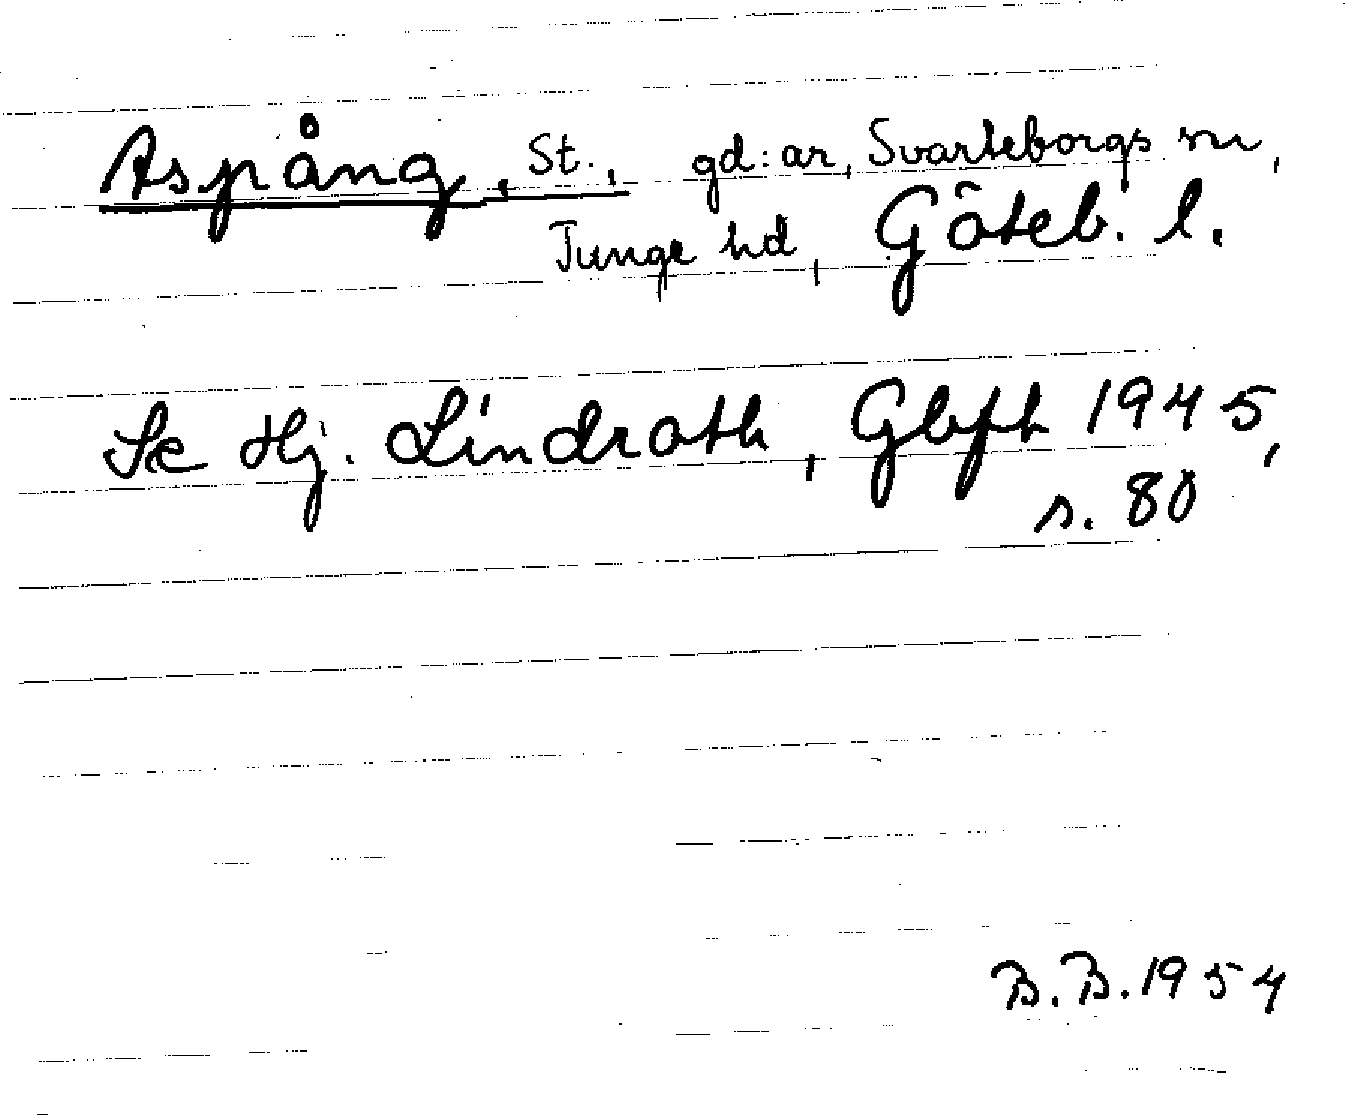 Aspång, St., gd:ar, Svarteborgs sn,
Tunge hd, Göteb. l.
Se Hj. Lindroth, Gbgft 1945,
s. 80
B.B. 1954